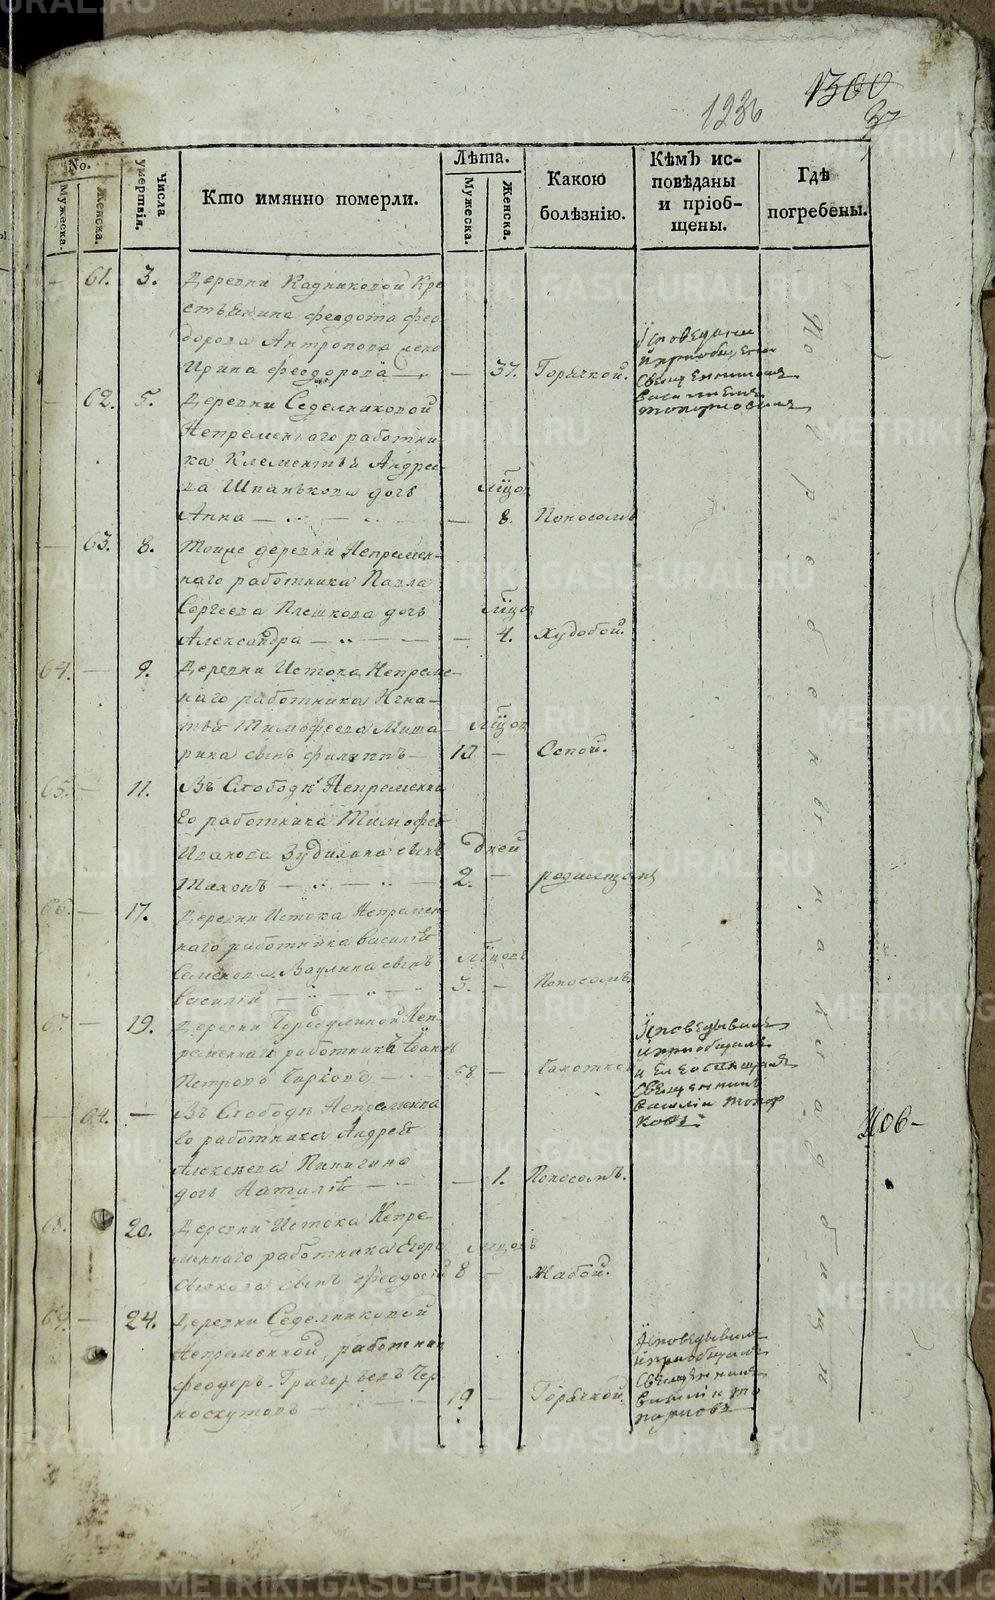 1236
1300
37
No.
Мужеска.
Женска.
Числа умертвія.
Кто имянно померли.
Лѣта.
Мужеска.
Женска.
Какою болѣзнію.
Кѣмъ ис-
повѣданы
и пріоб-
щены.
Гдѣ
погребены.
— 61. 3. Деревни Кадниковой Кре
стьянина Феодота Фео
дорова Антропова жена
Ирина Феодорова — 37. Горячкой.
Исповедана
и приобщена
священником
Василием
Топорковым
— 62. 5. Деревни Седелниковой
Непременнаго работни
ка Клементья Андрее
ва Шпанькова дочь мѣцов
Анна — 8. Поносомъ
— 63. 8. Тоиже деревни Непремен-
наго работника Павла
Сергеева Плешкова дочь мѣцов
Александра — 4. Худобой.
64. — 9. Деревни Истока Непреме-
наго работника Игна-
тья Тимофеева Миша мѣцов
рина сынъ Филиппъ — 10 — Сспой.
65. — 11. Въ Слободѣ Непременна
го работника Тимофея
Иванова Зудилова сынъ дней
2. — родимецомъ
66. — 17. Деревни Истока Непремен
наго работника Василья
Ваулина сынъ мѣцовъ
Василий — 3. — Поносомъ.
67. — 19. Деревни Непременнаго работникъ Иоаннъ
Петровъ — 58 —
Исповедывалъ
и приобщалъ
и Елеосвящалъ
священникъ
Василіи Топор
ковъ
— 64. — Въ Слободѣ Непременна
го работника Андрея
Алексеева Пинигина
дочь Наталья — 1. Поносомъ.
68. 20. Деревни Истока Непре
меннаго работника Егора мѣцовъ
сынъ Феодосій 8 — Жабой.
69. — 24. Деревни Седелниковой
Непременной работник
Феодоръ Григорьевъ Чер
носкутовъ — 19 — Горячкой.
Исповедывалъ
и приобщалъ
священникъ
Василіи То
порковъ
Погребены на кладбищи
METRIKI.GASO-URAL.RU